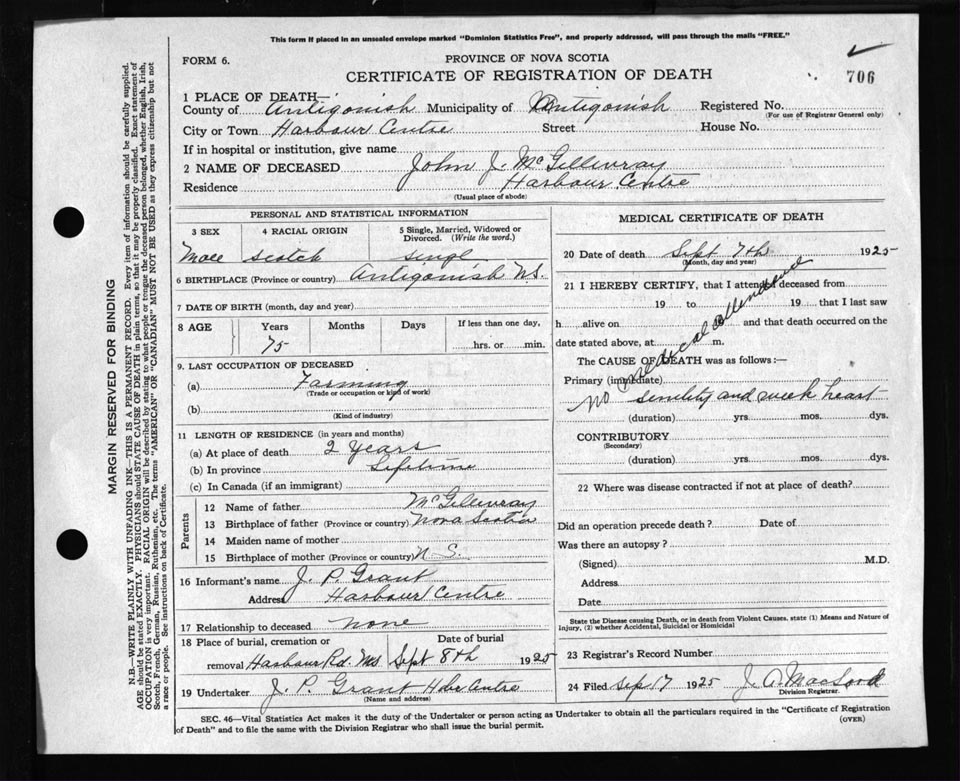 This form if placed in an unsealed envelope marked "Dominion Statistics Free", and properly addressed, will pass through the mails "FREE."
FORM 6.
PROVINCE OF NOVA SCOTIA
CERTIFICATE OF REGISTRATION OF DEATH
706
1 PLACE OF DEATH—
County of Antigonish Municipality of Antigonish Registered No.
(For use of Registrar General only)
City or Town Harbour Centre Street House No.
If in hospital or institution, give name
2 NAME OF DECEASED John J. McGillivray
Residence Harbour Centre
(Usual place of abode)
PERSONAL AND STATISTICAL INFORMATION
3 SEX 4 RACIAL ORIGIN 5 Single, Married, Widowed or Divorced. (Write the word.)
Male scotch singl
6 BIRTHPLACE (Province or country) Antigonish N.S.
7 DATE OF BIRTH (month, day and year)
8 AGE Years Months Days If less than one day,
75 hrs. or min.
9. LAST OCCUPATION OF DECEASED
(a) Farming
(Trade or occupation or kind of work)
(b)
(Kind of industry)
11 LENGTH OF RESIDENCE (in years and months)
(a) At place of death 2 Years
(b) In province Lifetime
(c) In Canada (if an immigrant)
Parents
12 Name of father McGillivray
13 Birthplace of father (Province or country) Nova Scotia
14 Maiden name of mother
15 Birthplace of mother (Province or country) N. S.
16 Informant's name J. P. Grant
Address Harbour Centre
17 Relationship to deceased none
18 Place of burial, cremation or removal Harbour Rd. Date of burial Sept 8th 1925
19 Undertaker J. P. Grant Hbr Centre
(Name and address)
MEDICAL CERTIFICATE OF DEATH
20 Date of death Sept 7th 1925
(Month, day and year)
21 I HEREBY CERTIFY, that I attended deceased from
19 to 19 that I last saw
h alive on and that death occurred on the
date stated above, at m.
The CAUSE OF DEATH was as follows:—
Primary (immediate)
no medical attendence
senility and week heart
(duration) yrs. mos. dys.
CONTRIBUTORY
(Secondary)
(duration) yrs. mos. dys.
22 Where was disease contracted if not at place of death?
Did an operation precede death? Date of
Was there an autopsy?
(Signed) M.D.
Address
Date
State the Disease causing Death, or in death from Violent Causes, state (1) Means and Nature of
Injury, (2) whether Accidental, Suicidal or Homicidal
23 Registrar's Record Number
24 Filed Sep 17 1925 J. A. MacLood
Division Registrar.
SEC. 46—Vital Statistics Act makes it the duty of the Undertaker or person acting as Undertaker to obtain all the particulars required in the "Certificate of Registration
of Death" and to file the same with the Division Registrar who shall issue the burial permit.
(OVER)
MARGIN RESERVED FOR BINDING
N.B.—WRITE PLAINLY WITH UNFADING INK—THIS IS A PERMANENT RECORD. Every item of information should be carefully supplied.
AGE should be stated EXACTLY. PHYSICIANS should STATE CAUSE OF DEATH in plain terms, so that it may be properly classified. Exact statement of
OCCUPATION is very important. RACIAL ORIGIN will be described by stating to what people or tongue the deceased person belonged, whether English, Irish,
Scotch, French, German, Russian, Ruthenian, etc. The terms "AMERICAN" OR "CANADIAN" MUST NOT BE USED as they express citizenship but not
a race or people. See instructions on back of Certificate.